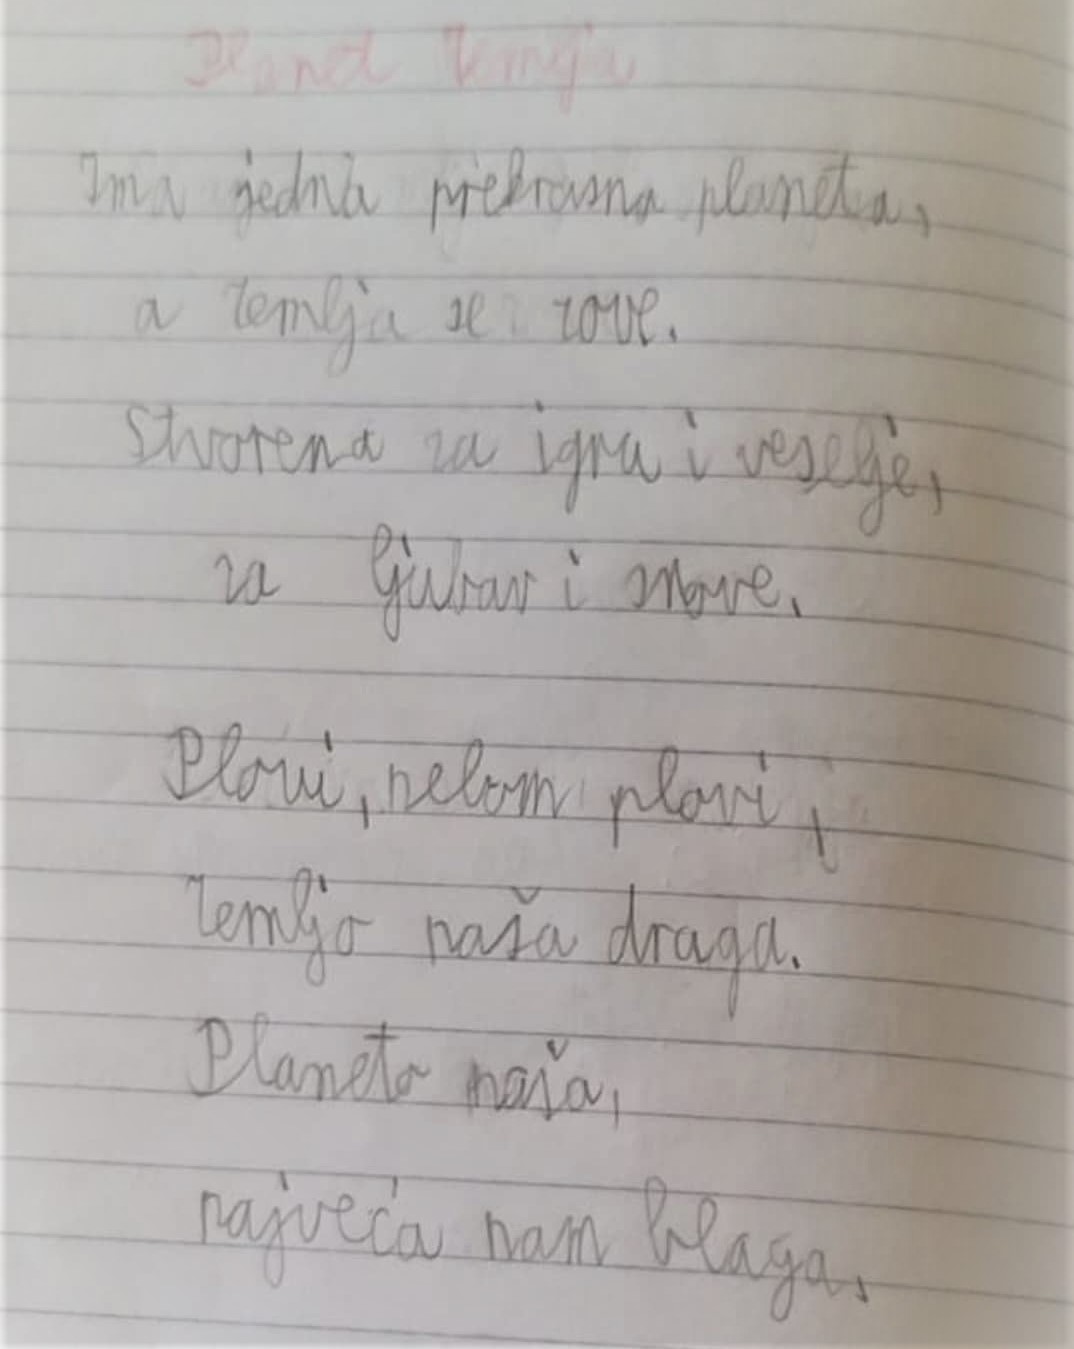 Planet Zemlja
Ima jedna prekrasna planeta,
a Zemlja se zove.
Stvorena za igru i veselje,
za ljubav i snove.
Plovi, nebom plovi,
Zemljo naša draga.
Planeto naša,
najveća nam blaga.